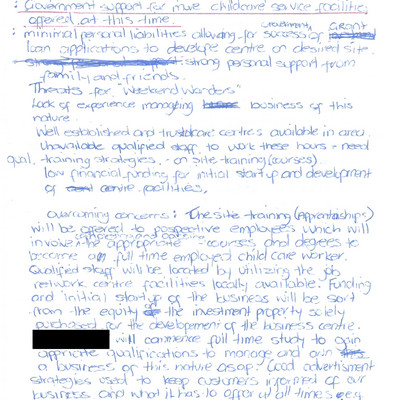 : Government support for more childcare service facilities
offered at this time.
Government GRANT
: minimal personal liabilities allowing for success of
loan applications to develope centre on desired site.
strong personal support from
family and friends.
Threats for "Weekend Wanders"
Lack of experience manageing business of this
nature.
Well established and trusted care centres available in area.
Unavailable qualified staff to work these hours - need
qual. training strategies. - on site training (courses)
low financial funding for initial startup and development
of centre facilities,
overcoming concerns: The site training (Apprentaships)
will be offered to pospective employees which will
involve the appropriate - courses and degrees to
become an full time employed child care worker.
Qualified staff will be located by utilizing the job
network centre facilities locally available. Funding
and initial startup of the business will be sort
from the equity of the investment property solely
purchased for the development of the business centre.
will commence full time study to gain
appricate qualifications to manage and own
a business of this nature asap. Good advertisment
strategies used to keep customers informed of our
business and what it has to offer at all times e.g.